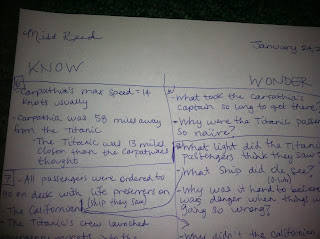 Miss Reed
January 24, 2
KNOW
WONDER
- Carpathia's max speed = 14
knots usually
- Carpathia was 58 miles away
from the Titanic
- The Titanic was 13 miles
closer than the Carpathia
thought
7 - All passengers were ordered to
go on deck with life preservers on
- The Californian (ship they saw)
- The Titanic's crew launched
- What took the Carpathia's
captain so long to get there?
- Why were the Titanic passen
so naive?
- What light did the Titanic
passengers think they saw?
- What ship did
see?
- Why was it hard to believe
was danger when things w
going so wrong?
- Why didn't the Californ